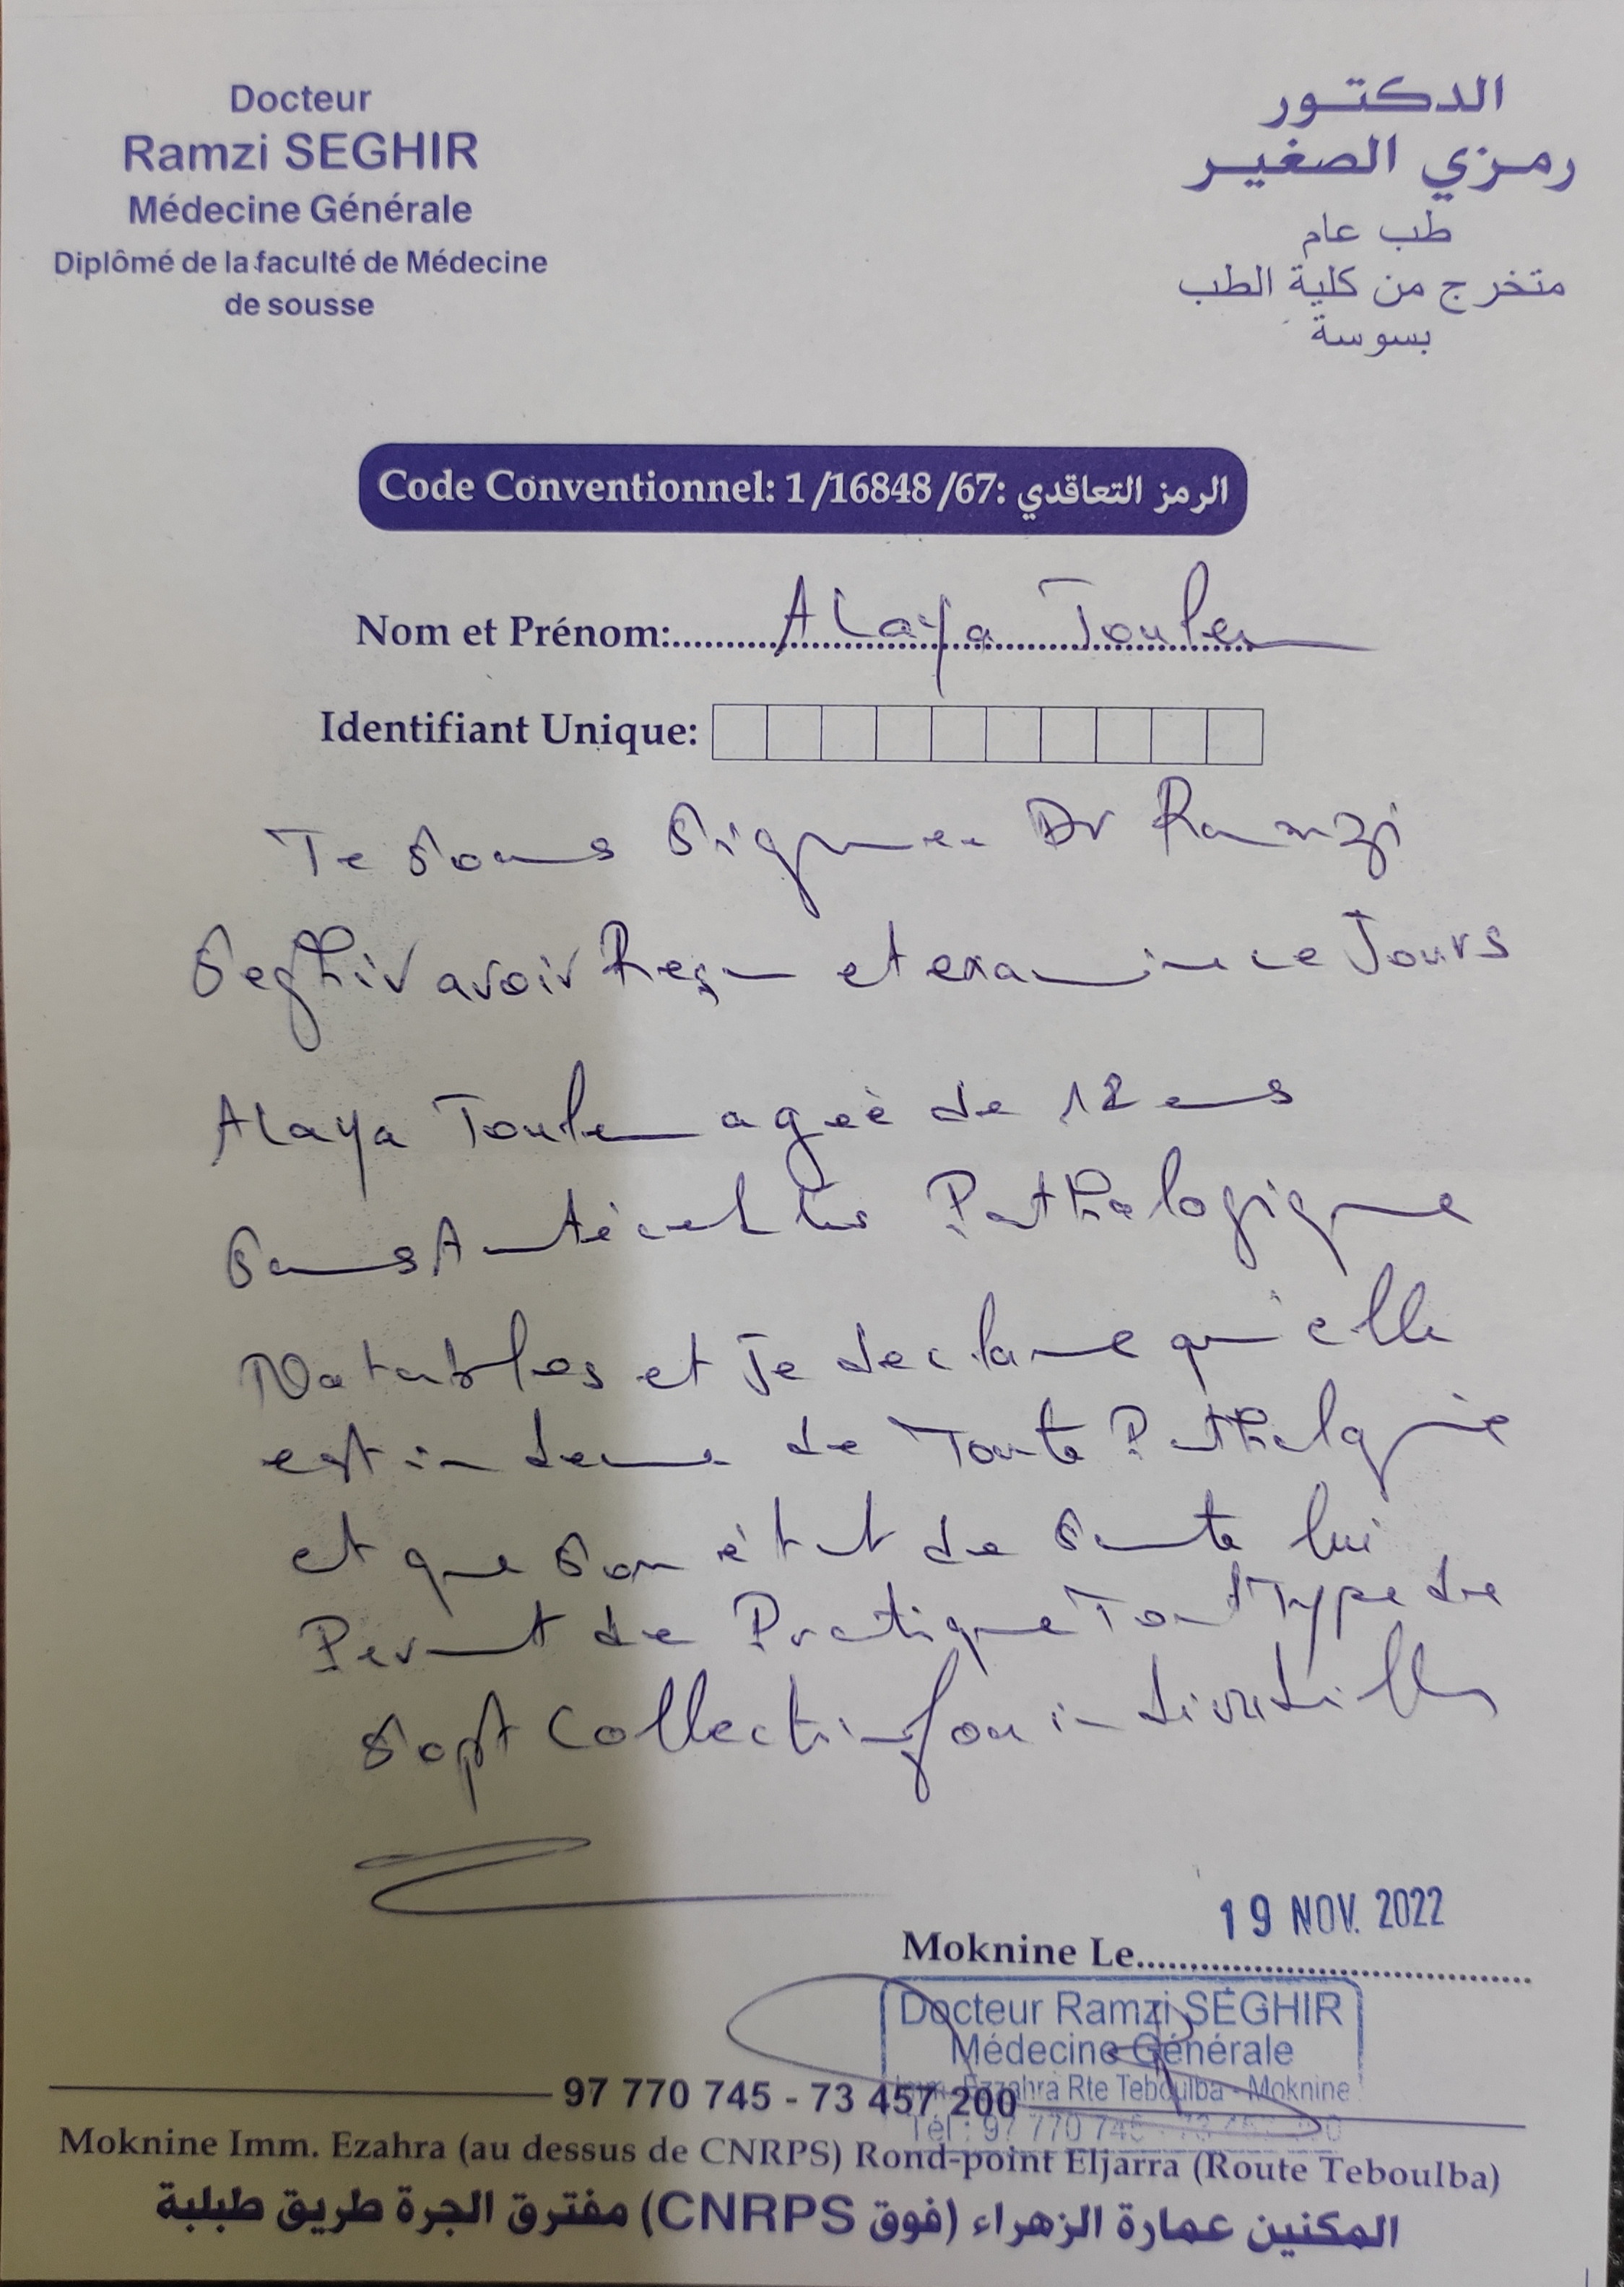 Docteur
Ramzi SEGHIR
Médecine Générale
Diplômé de la faculté de Médecine
de sousse
الدكتور
رمزي الصغير
طب عام
متخرج من كلية الطب
بسوسة
Code Conventionnel: 1/16848/67: الرمز التعاقدي
Nom et Prénom: Alaya
Identifiant Unique:
Je sous signee Dr Ramzi
Seghir avoir Reçu et examine ce Jours
Alaya ageè de ans
sans Antécédents Pathologique
Notables et Je declare qu'elle
est indeme de Toute Pathologie
et que son ètat de sante lui
Permet de Pratique Tout Type de
Sport Collectif ou individuelle
19 NOV. 2022
Moknine Le
Docteur Ramzi SEGHIR
Médecine Générale
Imm. Ezzahra Rte Teboulba - Moknine
Tél : 97 770 745 - 73 457 200
97 770 745 - 73 457 200
Moknine Imm. Ezahra (au dessus de CNRPS) Rond-point Eljarra (Route Teboulba)
المكنين عمارة الزهراء (فوق CNRPS) مفترق الجرة طريق طبلبة